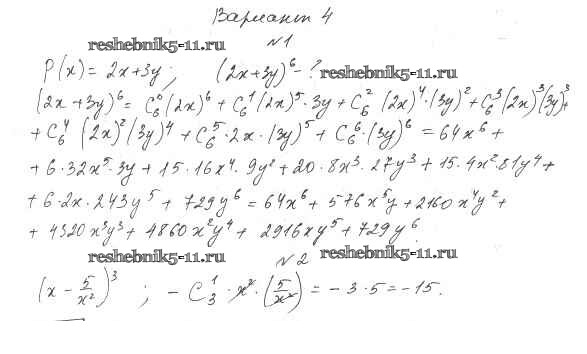 Вариант 4
reshebnik5-11.ru
№1
P(x) = 2x+3y; (2x+3y)^6 - ?
reshebnik5-11.ru
(2x+3y)^6 = C_6^0 (2x)^6 + C_6^1 (2x)^5 · 3y + C_6^2 (2x)^4 · (3y)^2 + C_6^3 (2x)^3 (3y)^3 +
+ C_6^4 (2x)^2 (3y)^4 + C_6^5 · 2x · (3y)^5 + C_6^6 · (3y)^6 = 64x^6 +
+ 6 · 32x^5 · 3y + 15 · 16x^4 · 9y^2 + 20 · 8x^3 · 27y^3 + 15 · 4x^2 · 81y^4 +
+ 6 · 2x · 243y^5 + 729y^6 = 64x^6 + 576x^5y + 2160x^4y^2 +
+ 4320x^3y^3 + 4860x^2y^4 + 2916xy^5 + 729y^6.
reshebnik5-11.ru
№2
reshebnik5-11.ru
(x - 5/x^2)^3 ; - C_3^1 · x^2 · (5/x^2) = -3 · 5 = -15.